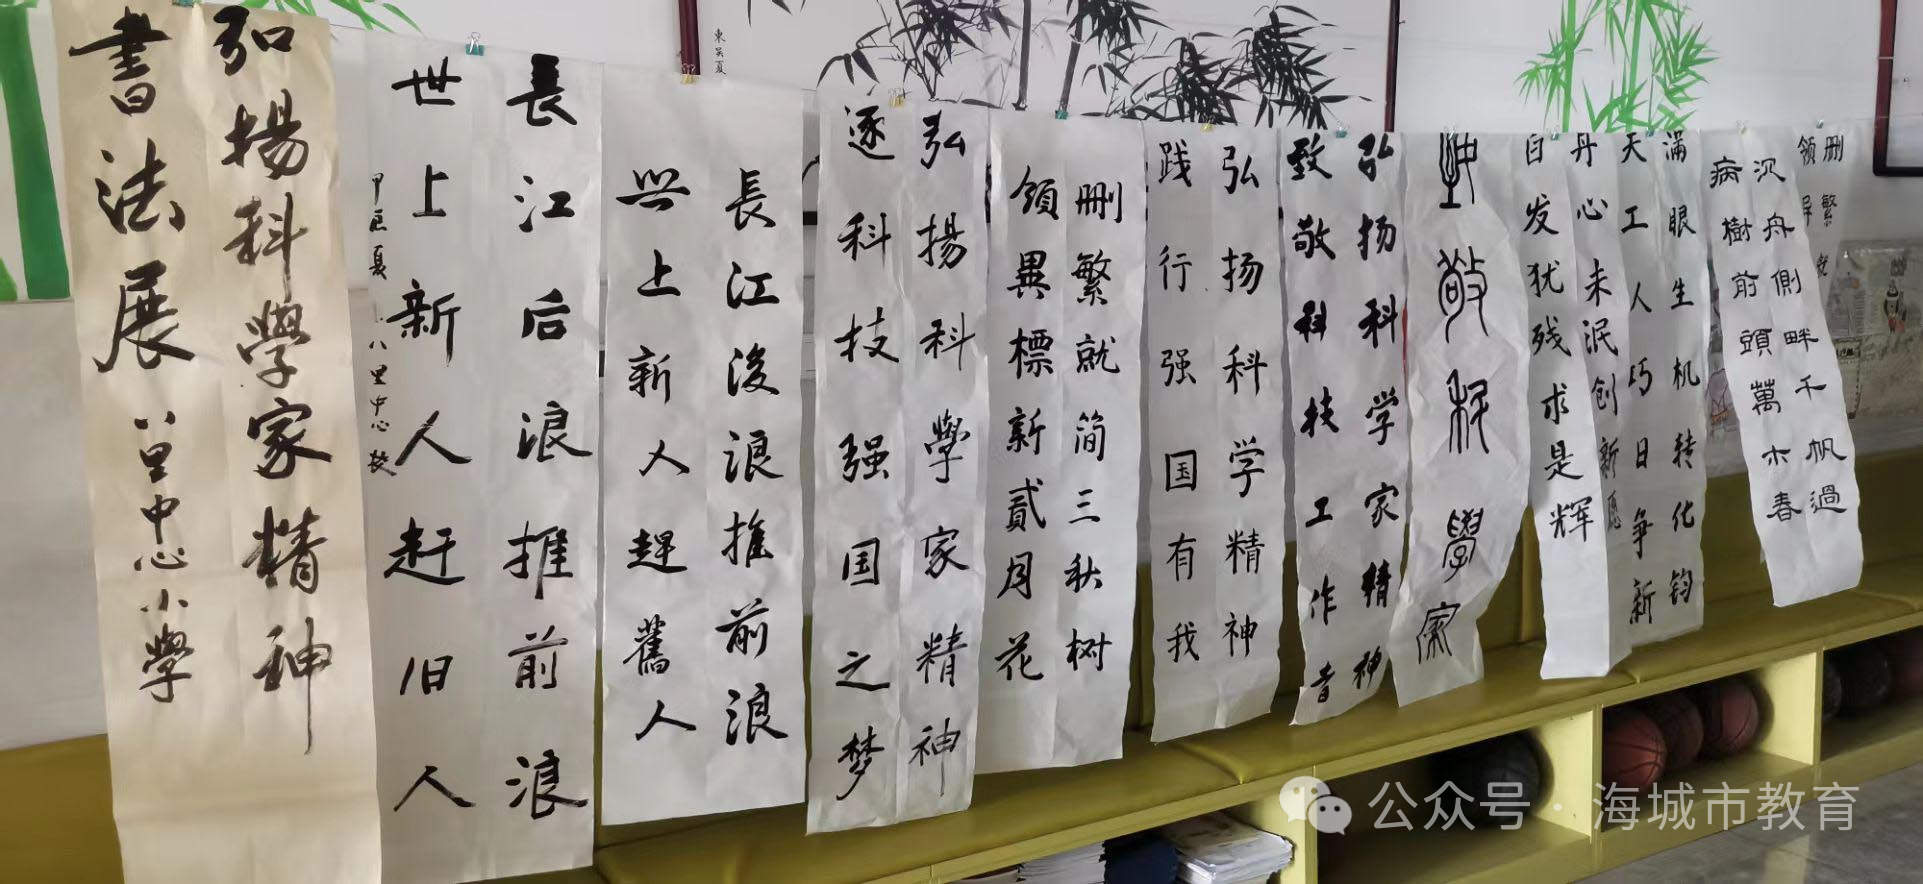 弘揚科學家精神
書法展
八里中心小學
長江后浪推前浪
世上新人赶旧人
八里中心校
長江後浪推前浪
世上新人趕舊人
弘揚科學家精神
逐科技强国之梦
删繁就简三秋树
領異標新貳月花
弘扬科学精神
践行强国有我
弘扬科学家精神
致敬科技工作者
致敬科學家
满眼生机转化钧
天工人巧日争新
丹心未泯创新愿
白发犹残求是辉
删繁就
领异
沉舟側畔千帆過
病樹前頭萬木春
東吴夏
公众号·海城市教育